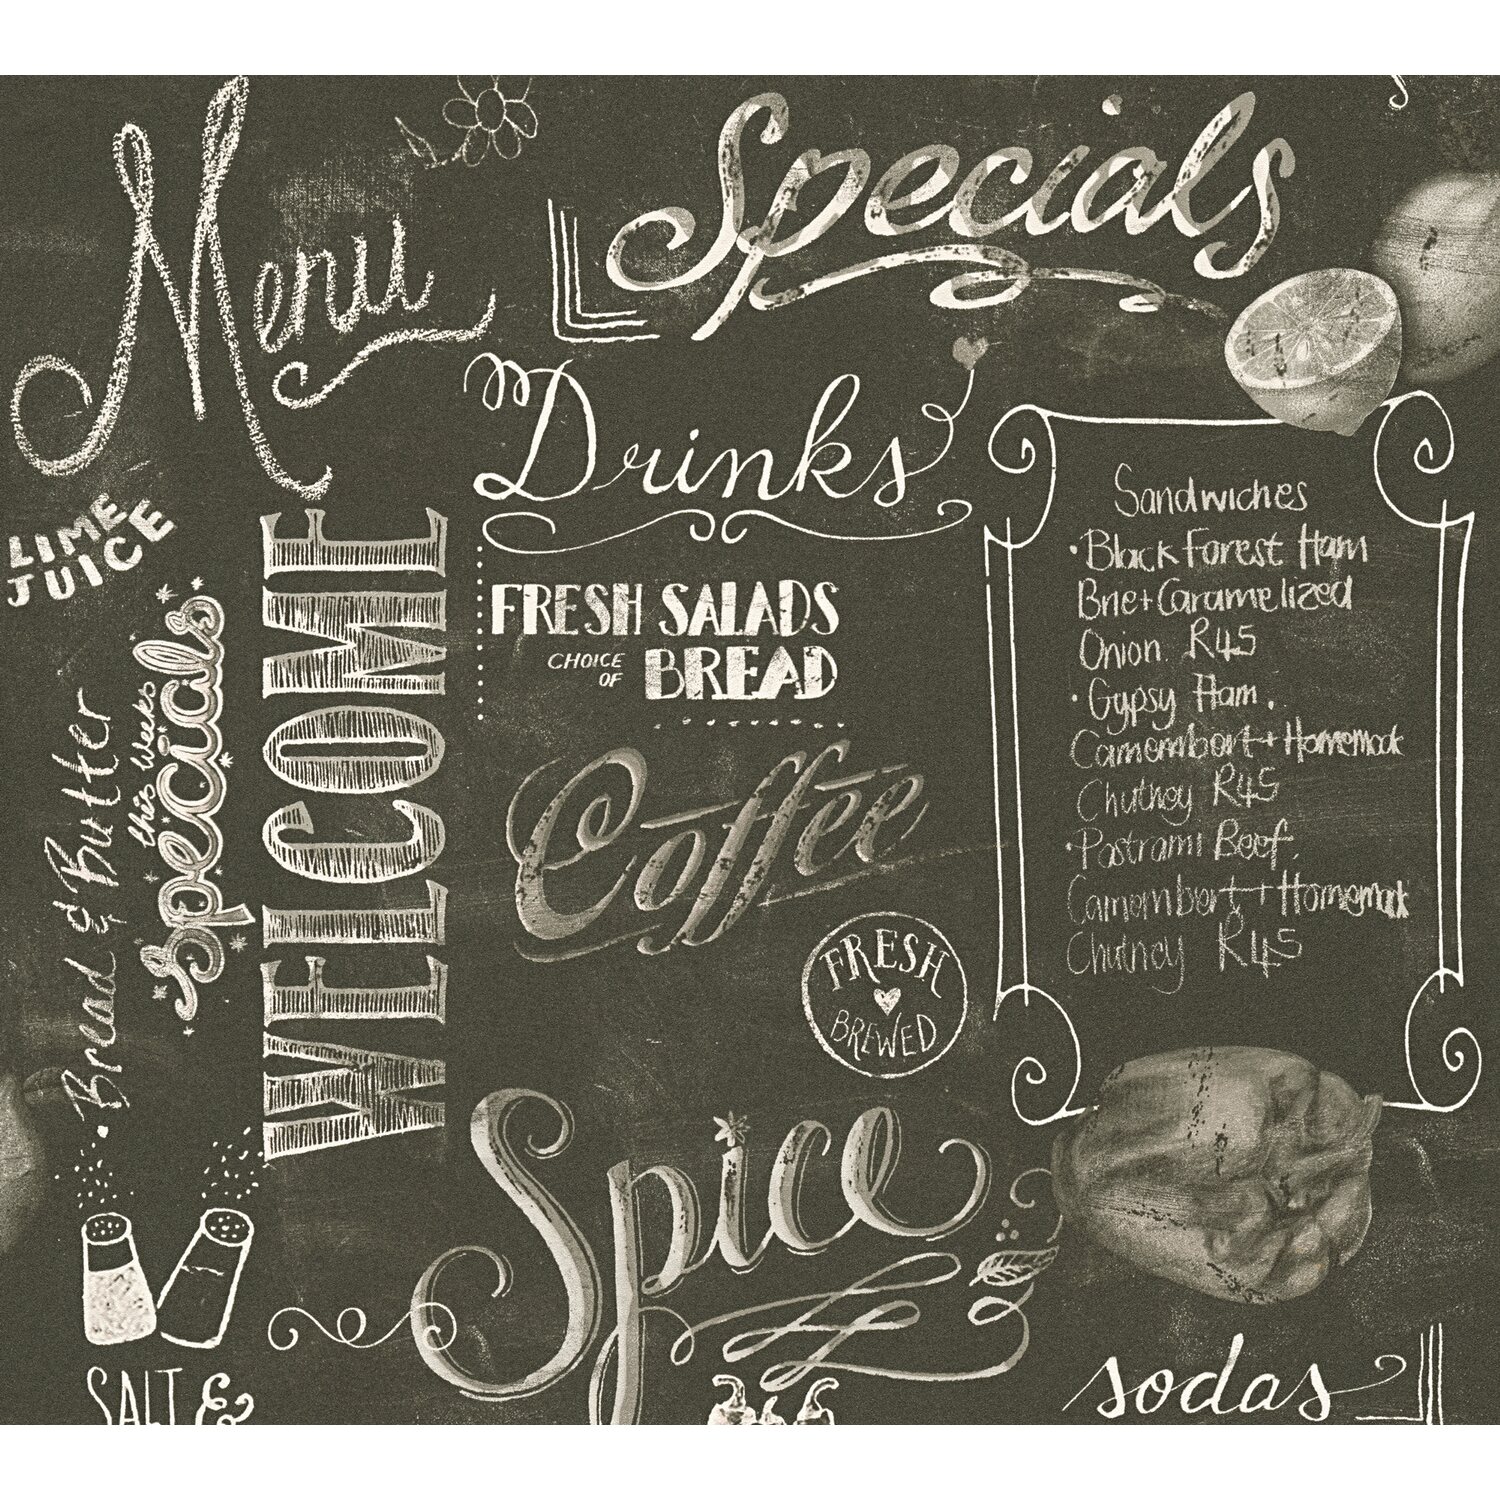 Menu
Specials
Drinks
LIME
JUICE
WELCOME
this weeks
Specials
Bread & Butter
FRESH SALADS
CHOICE
OF
BREAD
Coffee
FRESH
BREWED
Sandwiches
• Black Forest Ham
Brie + Caramelized
Onion R45
• Gypsy Ham.
Camembert + Homemade
Chutney R45
• Pastrami Beef.
Camembert + Homemade
Chutney R45
Spice
SALT &
sodas